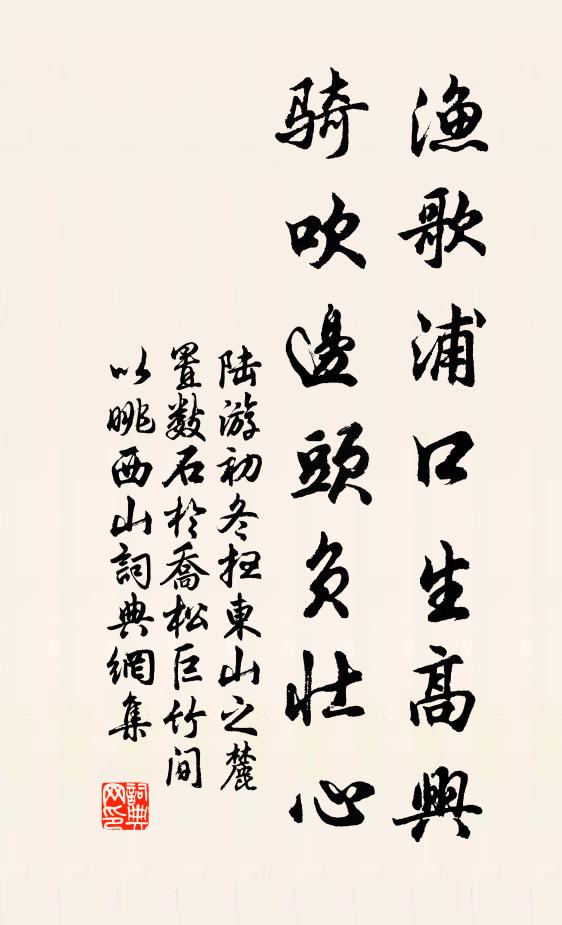 渔歌浦口生高興
骑吹邊頭負壮心
陆游初冬扫東山之麓
置数石於喬松巨竹间
以眺西山詞典網集
詞典网印